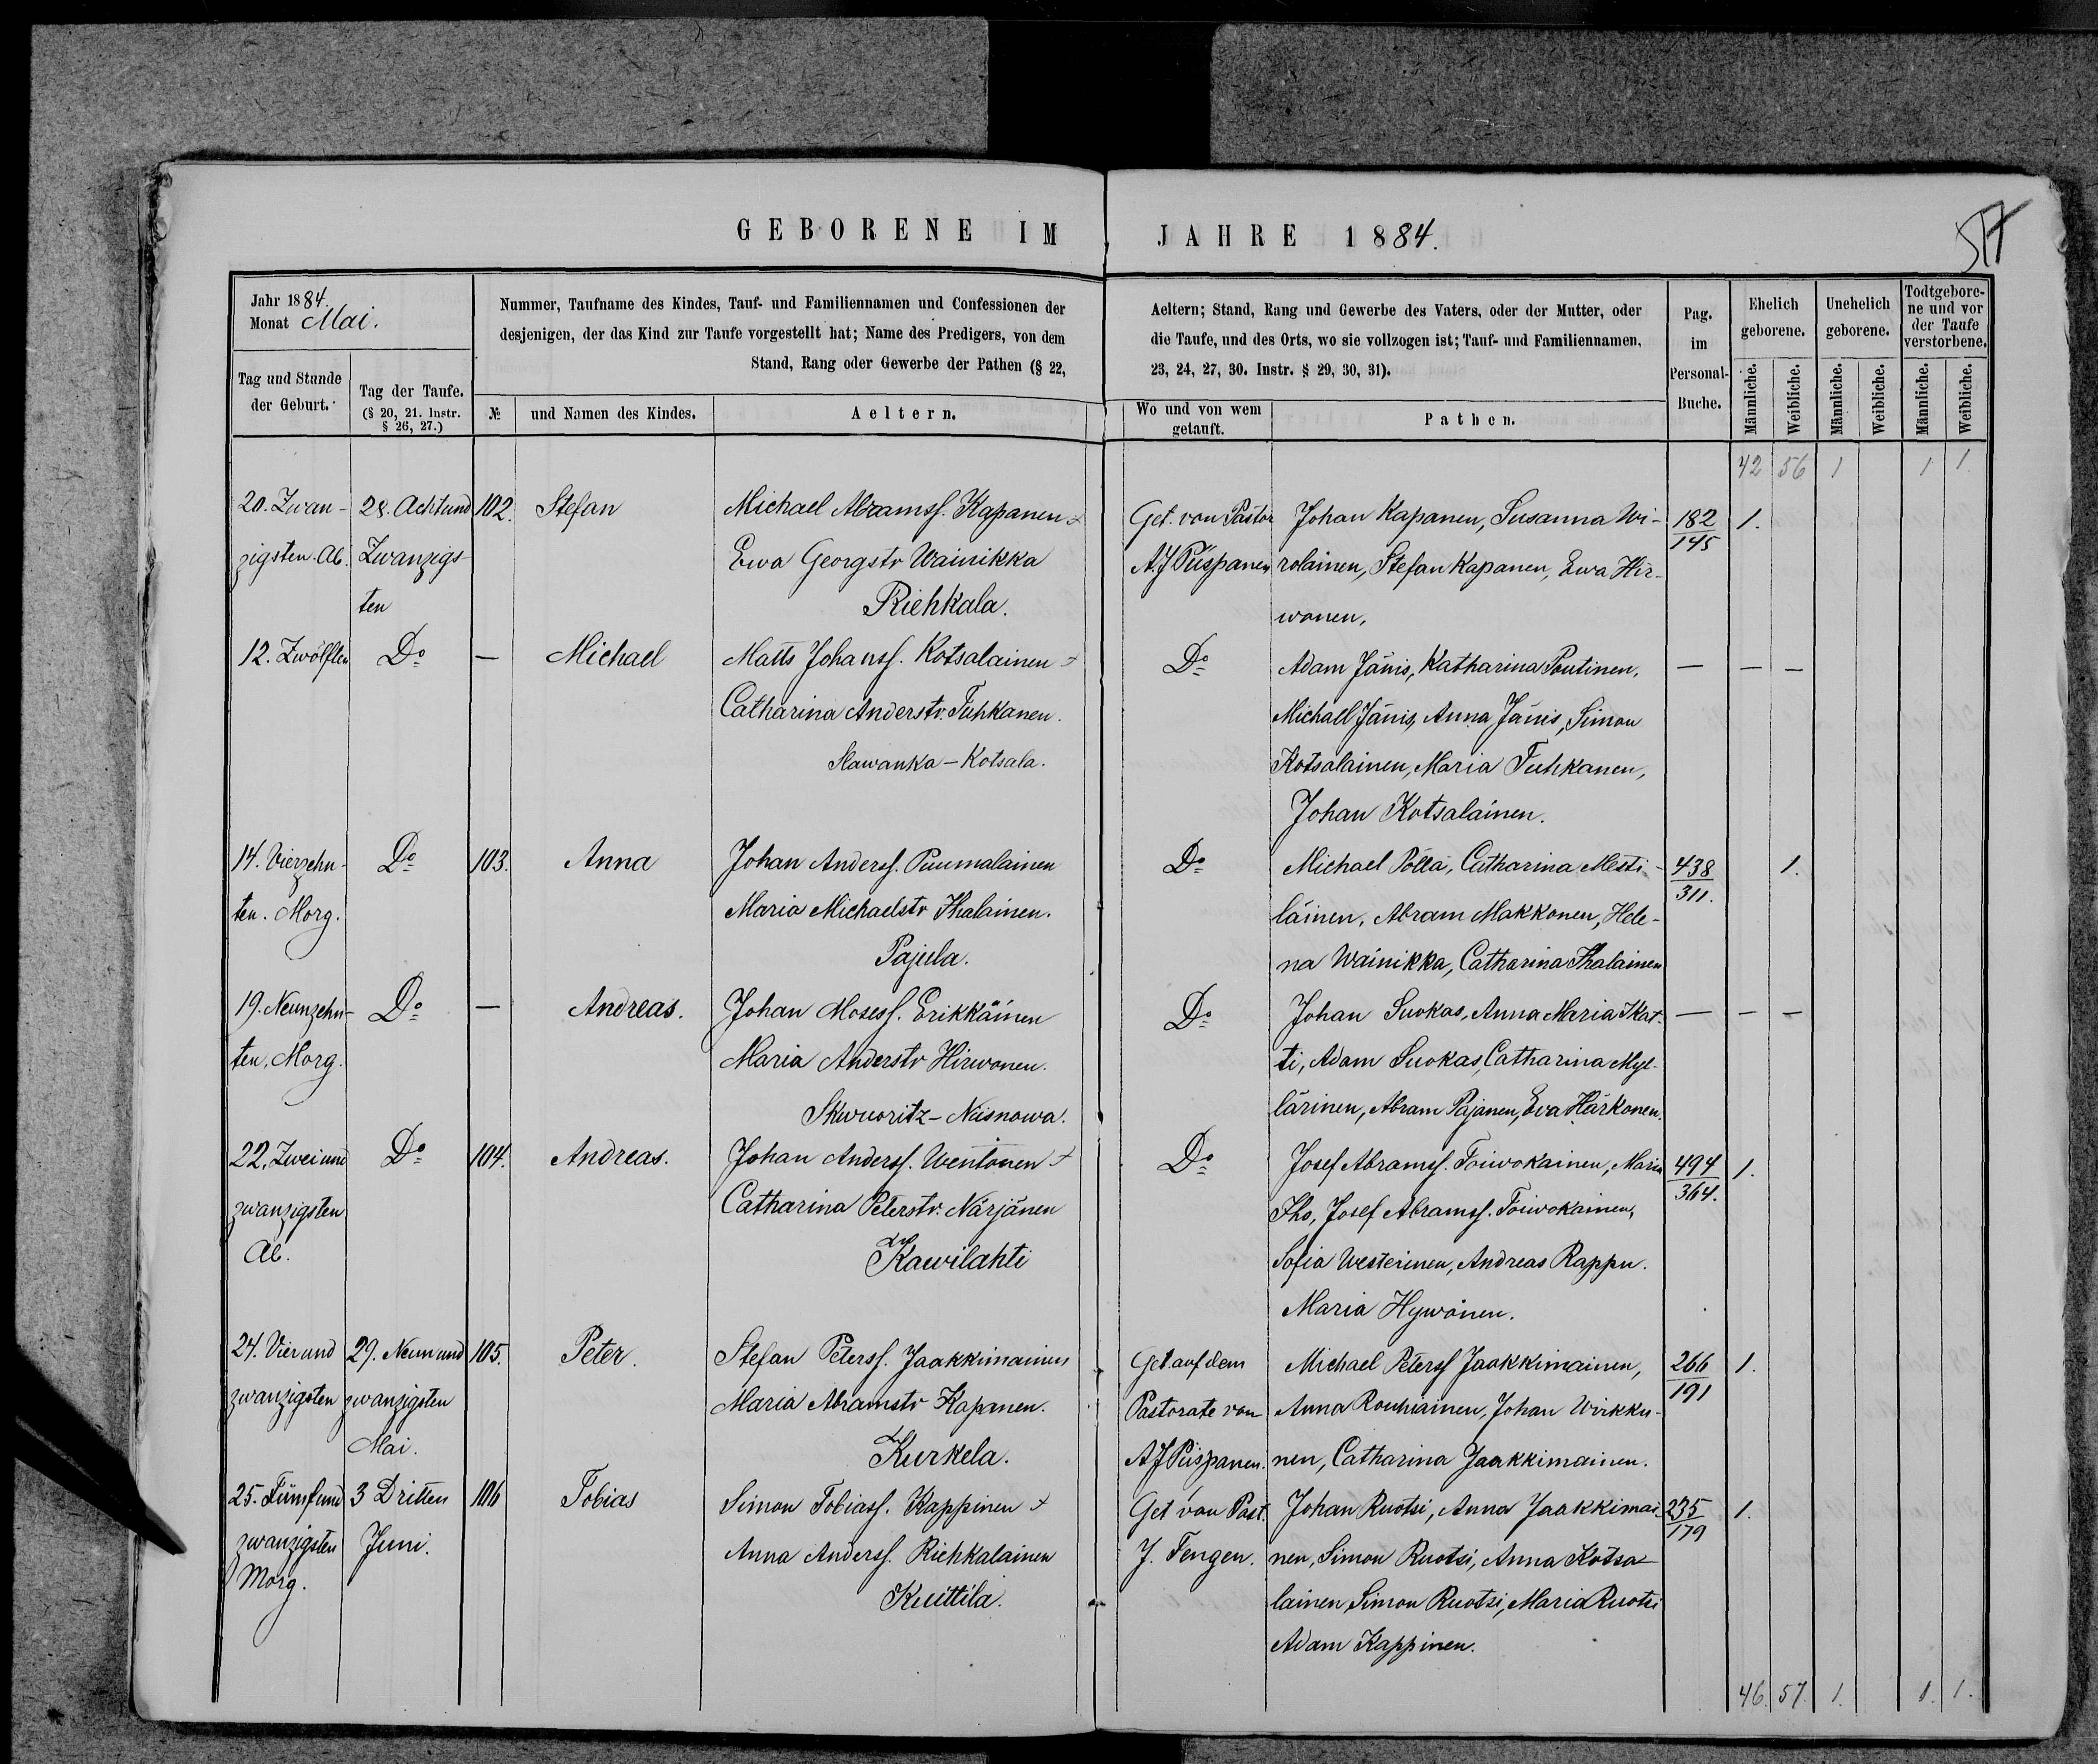 GEBORENE IM JAHRE 1884.
Jahr 1884.
Monat Mai.
Tag und Stunde
der Geburt.
Tag der Taufe.
(§ 20, 21. Instr.
§ 26, 27.)
Nummer, Taufname des Kindes, Tauf- und Familiennamen und Confessionen der
desjenigen, der das Kind zur Taufe vorgestellt hat; Name des Predigers, von dem
Stand, Rang oder Gewerbe der Pathen (§ 22,
№
und Namen des Kindes.
Aeltern.
Aeltern; Stand, Rang und Gewerbe des Vaters, oder der Mutter, oder
die Taufe, und des Orts, wo sie vollzogen ist; Tauf- und Familiennamen,
23, 24, 27, 30. Instr. § 29, 30, 31).
Wo und von wem
getauft.
Pathen.
Pag.
im
Personal-
Buche.
Ehelich
geborene.
Unehelich
geborene.
Todtgebore-
ne und vor
der Taufe
verstorbene.
Männliche. Weibliche. Männliche. Weibliche. Männliche. Weibliche.
42 56 1 1 1
20. Zwan-
zigsten Ab.
28. Achtund
Zwanzigs-
ten
102.
Stefan
Michael Abramss. Kapanen
Ewa Georgstr Wainikka
Riehkala.
Get. von Pastor
A J Piispanen
Johan Kapanen, Susanna Wi-
rolainen, Stefan Kapanen, Ewa Hir-
wonen,
182
145
1.
12. Zwölften
Do
—
Michael
Matts Johanss. Kotsalainen
Catharina Anderstr. Tuhkanen.
Slawanka - Kotsala.
Do
Adam Jänis, Katharina Poutinen,
Michael Jänis, Anna Jänis, Simon
Kotsalainen, Maria Tuhkanen,
Johan Kotsalainen.
— — —
14. Vierzehn-
ten. Morg.
Do
103.
Anna
Johan Anderss. Puumalainen
Maria Michaelstr Ihalainen.
Pajula.
Do
Michael Pöllä, Catharina Mesti-
läinen, Abram Makkonen, Hele-
na Wäinikka, Catharina Ihalainen
438
311.
1.
19. Neunzehn-
ten, Morg.
Do
—
Andreas.
Johan Mosess. Erikkäinen
Maria Anderstr Hirwonen.
Skwuoritz - Naisnowa.
Do
Johan Suokas, Anna Maria Kat-
ti, Adam Suokas, Catharina Myl-
lärinen, Abram Pajanen, Eva Härkonen.
— — —
22. Zweiund
zwanzigsten
Ab.
Do
104.
Andreas.
Johan Anderss. Wentonen
Catharina Peterstr. Närjänen
Kawilahti
Do
Josef Abramss. Toiwokainen, Maria
Iho, Josef Abramss. Toiwokainen,
Sofia Westerinen, Andreas Rappu.
Maria Hywönen.
494
364.
1.
24. Vierund
zwanzigsten
29. Neunund
zwanzigsten
Mai.
105.
Peter.
Stefan Peterss. Jaakkimainen
Maria Abramstr Kapanen.
Kurkela.
Get. auf dem
Pastorate von
A J Piispanen.
Michael Peterss Jaakkimainen,
Anna Rouhiainen, Johan Wirkku-
nen, Catharina Jaakkimainen.
266
191
1.
25. Fünfund
zwanzigsten
Morg.
3 Dritten
Juni.
106
Tobias
Simon Tobiass. Kappinen
Anna Anderss. Richkalainen
Kuittila.
Get von Past.
J. Fengen.
Johan Ruotsi, Anna Jaakkimai-
nen, Simon Ruotsi, Anna Kotsa-
lainen Simon Ruotsi, Maria Ruotsi
Adam Kappinen.
235
179
1.
46. 57. 1. 1. 1.